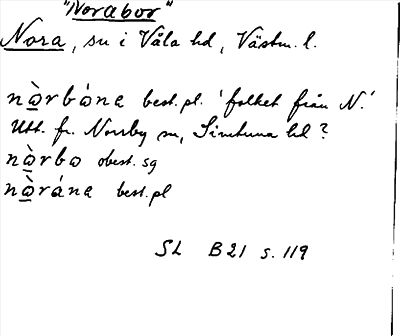 "Norabor"
Nora, sn i Våla hd, Västm. l.
nὼ̱rbóna best. pl. 'folket från N.'
Utt. fr. Norrby sn, Simtuna hd?
nὼ̱rbo obest. sg
nὼ̱rána best. pl
SL B21 s. 119